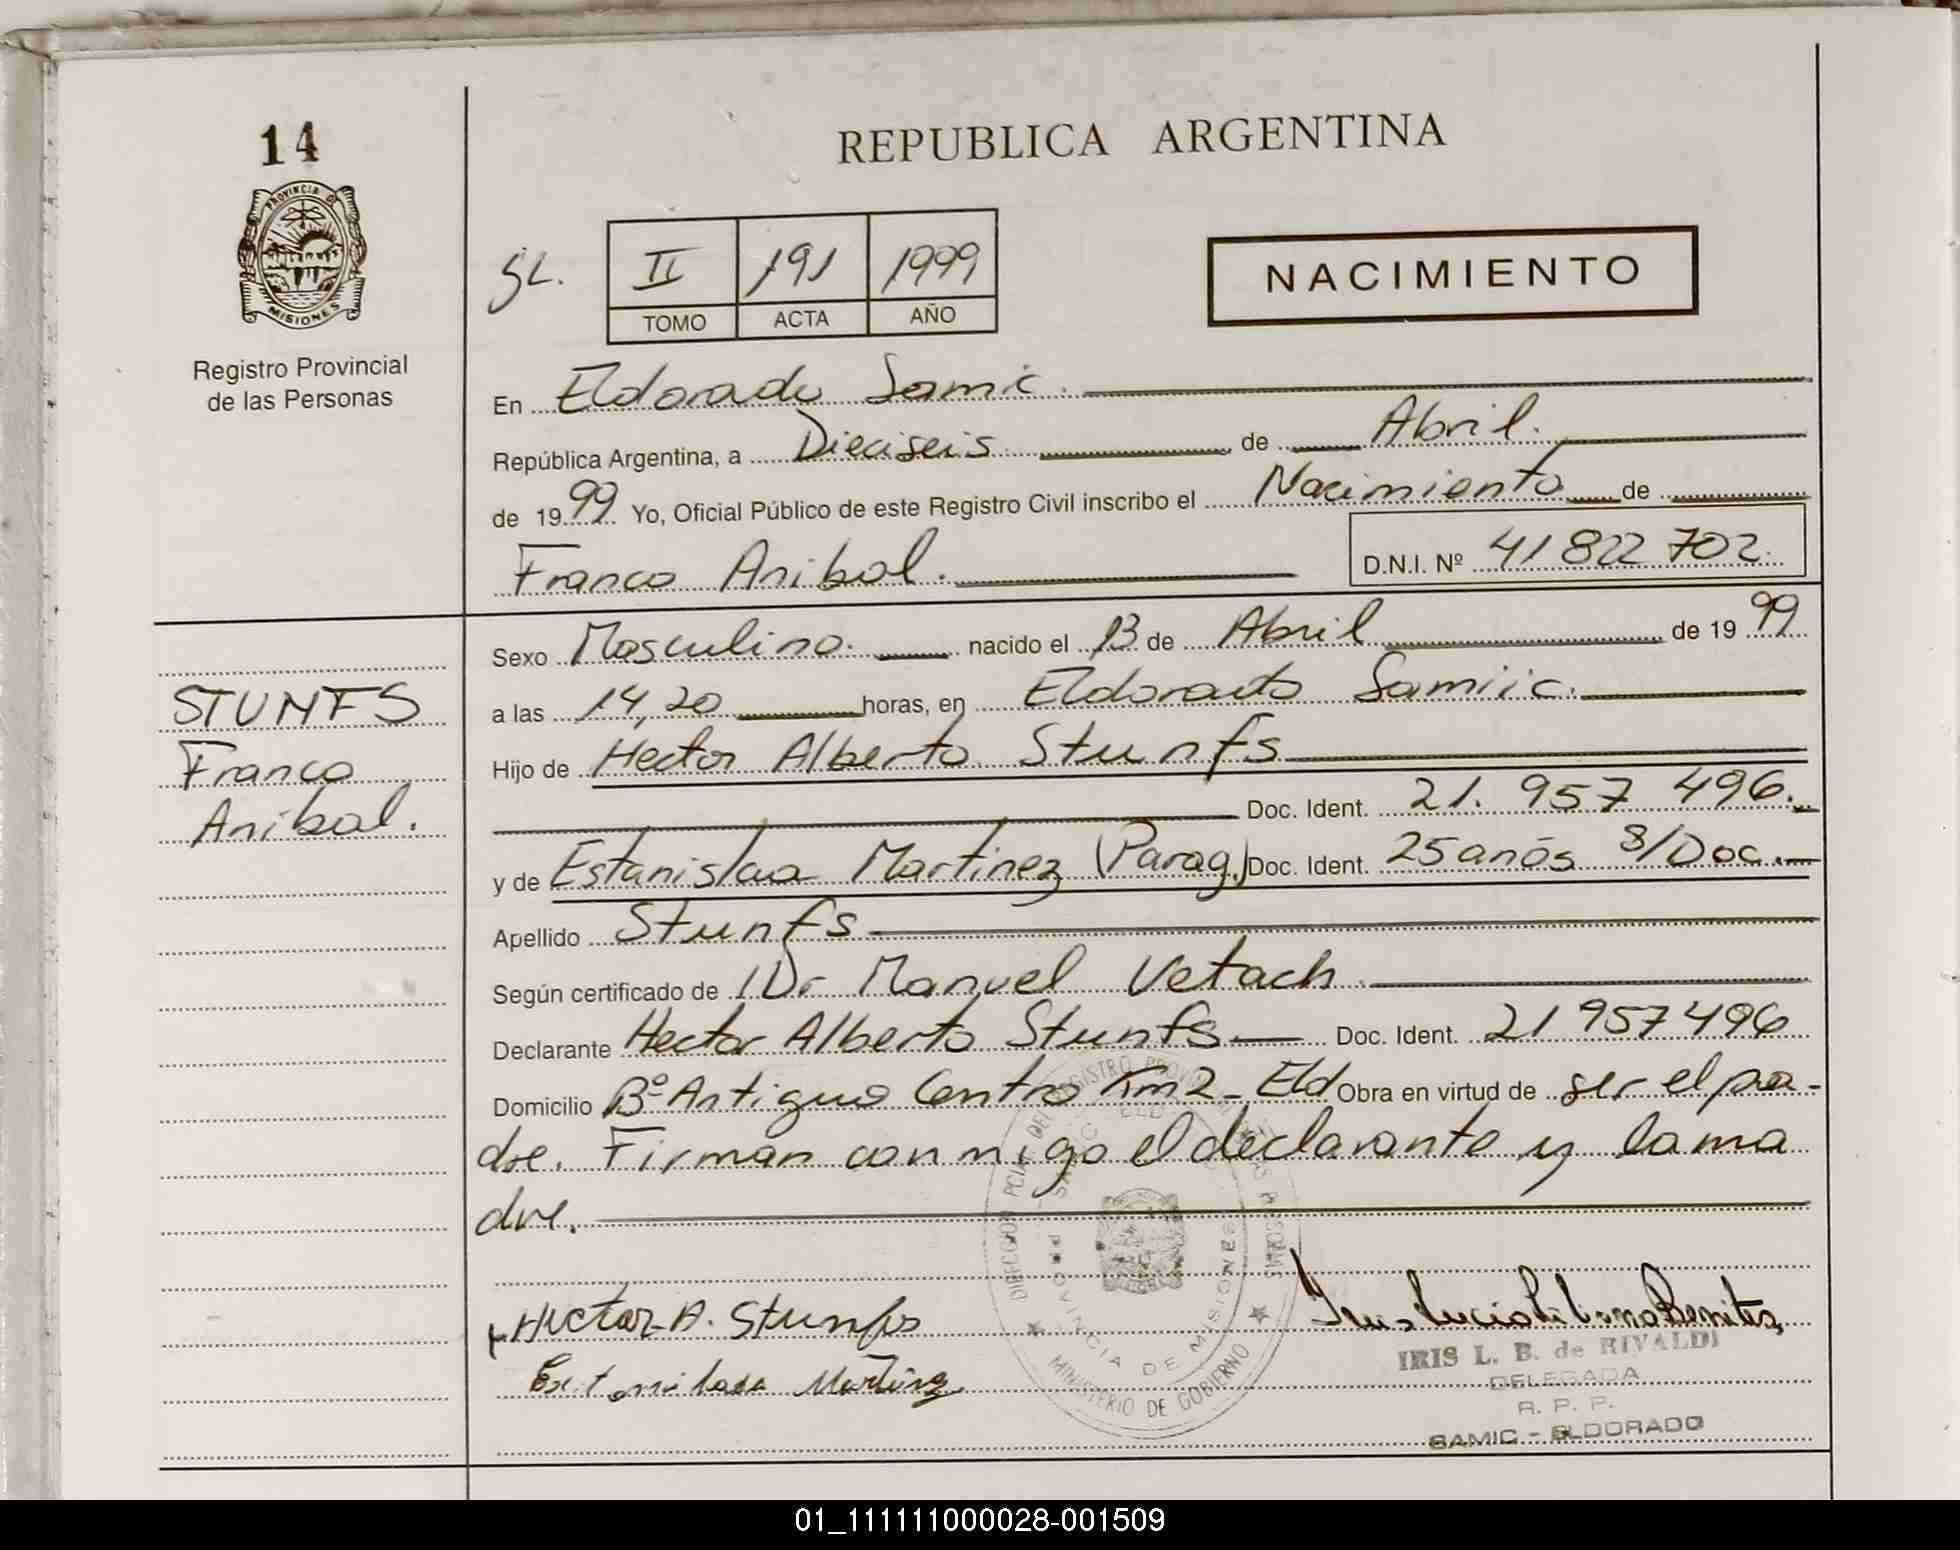 14
PROVINCIA DE
MISIONES
Registro Provincial
de las Personas
REPUBLICA ARGENTINA
SL. II 191 1999
TOMO ACTA AÑO
NACIMIENTO
En Eldorado Samic.
República Argentina, a Dieciseis de Abril.
de 1999 Yo, Oficial Público de este Registro Civil inscribo el Nacimiento de
Franco Anibal. D.N.I. Nº 41 822 702.
STUNFS
Franco
Anibal.
Sexo Masculino. nacido el 13 de Abril de 1999
a las 14,20 horas, en Eldorado Samiic.
Hijo de Hector Alberto Stunfs
Doc. Ident. 21. 957 496.
y de Estanislaa Martinez (Parag.) Doc. Ident. 25 anós S/Doc.
Apellido Stunfs
Según certificado de Dr Manuel Vetach.
Declarante Hector Alberto Stunfs Doc. Ident. 21 957 496
Domicilio Bº Antiguo Centro Km 2 - Eld Obra en virtud de ser el pa-
dre. Firman conmigo el declarante y la ma
dre.
Hector A. Stunfs
Martinez
IRIS L. B. de RIVALDI
DELEGADA
R. P. P.
SAMIC - ELDORADO
PROVINCIA DE MISIONES
MINISTERIO DE GOBIERNO
01_111111000028-001509